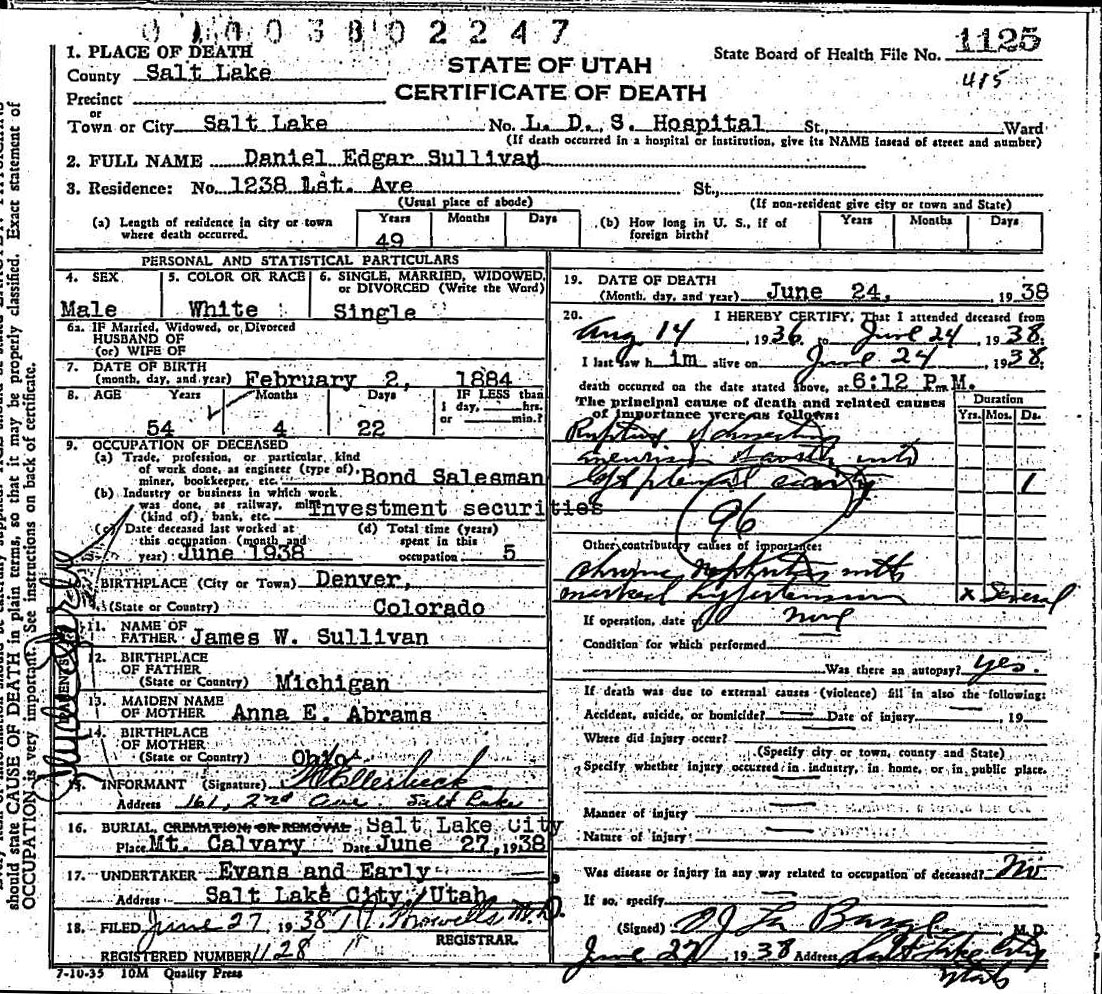 0 1 0 0 3 8 0 2 2 4 7
1. PLACE OF DEATH
County Salt Lake
Precinct
or
Town or City Salt Lake No. L. D. S. Hospital St., Ward
(If death occurred in a hospital or institution, give its NAME insead of street and number)
STATE OF UTAH
CERTIFICATE OF DEATH
State Board of Health File No. 1125
415
2. FULL NAME Daniel Edgar Sullivan
3. Residence: No. 1238 1st. Ave St.,
(Usual place of abode)
(If non-resident give city or town and State)
(a) Length of residence in city or town where death occurred.
Years Months Days
49
(b) How long in U. S., if of foreign birth?
Years Months Days
PERSONAL AND STATISTICAL PARTICULARS
4. SEX
Male
5. COLOR OR RACE
White
6. SINGLE, MARRIED, WIDOWED, or DIVORCED (Write the Word)
Single
6a. IF Married, Widowed, or Divorced
HUSBAND OF
(or) WIFE OF
7. DATE OF BIRTH
(month, day, and year) February 2, 1884
8. AGE Years Months Days
54 4 22
IF LESS than
1 day, hrs.
or min.?
9. OCCUPATION OF DECEASED
(a) Trade, profession, or particular kind
of work done, as engineer (type of),
miner, bookkeeper, etc. Bond Salesman
(b) Industry or business in which work
was done, as railway, mine
(kind of), bank, etc. Investment securities
(c) Date deceased last worked at
this occupation (month and
year) June 1938
(d) Total time (years)
spent in this
occupation 5
BIRTHPLACE (City or Town) Denver,
(State or Country) Colorado
11. NAME OF
FATHER James W. Sullivan
12. BIRTHPLACE
OF FATHER
(State or Country) Michigan
13. MAIDEN NAME
OF MOTHER Anna E. Abrams
14. BIRTHPLACE
OF MOTHER
(State or Country) Ohio
PARENTS
15. INFORMANT (Signature)
Address 161, 2nd Ave Salt Lake
16. BURIAL, CREMATION, OR REMOVAL Salt Lake City
Place Mt. Calvary Date June 27, 1938
17. UNDERTAKER Evans and Early
Address Salt Lake City, Utah
18. FILED June 27 1938 M.D.
REGISTRAR.
REGISTERED NUMBER 1128
7-10-35 10M Quality Press
19. DATE OF DEATH
(Month, day, and year) June 24, 1938
20. I HEREBY CERTIFY, That I attended deceased from
Aug 14 1936 to June 24 1938;
I last saw him alive on June 24, 1938
death occurred on the date stated above, at 6:12 P. M.
The principal cause of death and related causes
of importance were as follows:
Duration
Yrs. Mos. Ds.
Rupture of dissecting
aneurism of aorta into
left pleural cavity 1
96
Other contributory causes of importance:
Chronic nephritis with
marked hypertension x Several
If operation, date of none
Condition for which performed
Was there an autopsy? yes.
If death was due to external causes (violence) fill in also the following:
Accident, suicide, or homicide? Date of injury, 19
Where did injury occur?
(Specify city or town, county and State)
Specify whether injury occurred in industry, in home, or in public place.
Manner of injury
Nature of injury
Was disease or injury in any way related to occupation of deceased? No
If so, specify
(Signed) M.D.
June 27 1938 Address Salt Lake City
Utah
should state CAUSE OF DEATH in plain terms, so that it may be properly classified. Exact statement of
OCCUPATION is very important. See instructions on back of certificate.